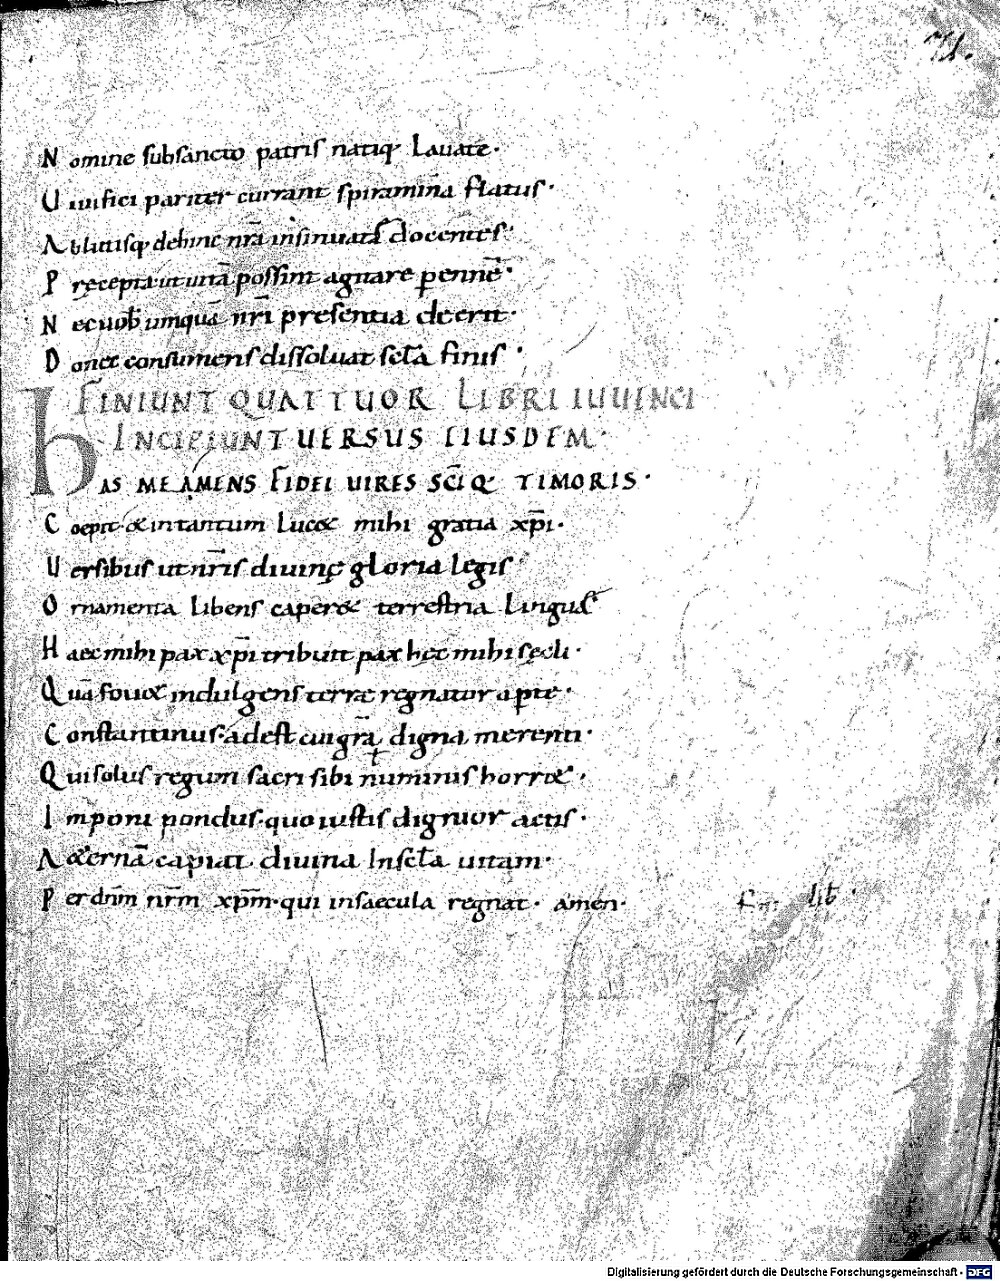 71.
Nomine sub sancto patris natiq; Lauate.
Uiuifici pariter currant spiramina flatus.
Ablutisq; dehinc nr̄a insinuate docentes.
Precepta ut uitā possint agitare pennē.
Nec uob̄ umquā nr̄i presentia deerit.
Donec consumens dissoluat sc̄la finis.
FINIUNT QUATTUOR LIBRI IUUINCI
INCIPIUNT UERSUS EIUSDEM.
HAS MEA MENS FIDEI UIRES SC̄IQ; TIMORIS.
Coepit & in tantum Lucet mihi gratia xp̄i.
Uersibus ut nr̄is diuinę gloria legis
Ornamenta libens caperet terrestria Linguę
Haec mihi pax xp̄i tribuit pax hęc mihi sęcli.
Quā fouet indulgens terrae regnator apte.
Constantinus. adest cui gr̄a digna merenti.
Qui solus regum sacri sibi numinis horret.
Imponi pondus. quo iustis dignior actis.
Aeternā capiat diuina In sc̄la uitam.
Per dn̄m nr̄m xp̄m. qui in saecula regnat. amen. lib̄.
Digitalisierung gefördert durch die Deutsche Forschungsgemeinschaft - DFG